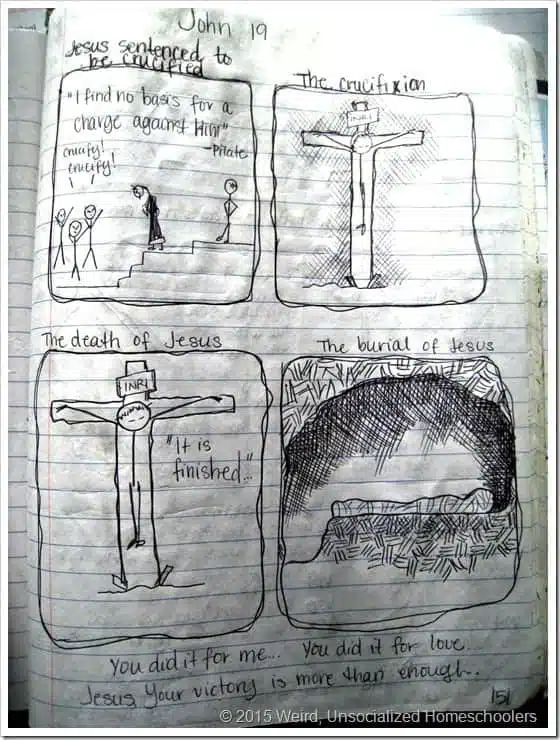 John 19
Jesus sentenced to
be crucified
"I find no basis for a
charge against Him"
-Pilate
crucify!
crucify!
The crucifixion
INRI
The death of Jesus
INRI
"It is
finished..."
The burial of Jesus
You did it for me... You did it for love...
Jesus, Your victory is more than enough.
151
© 2015 Weird, Unsocialized Homeschoolers